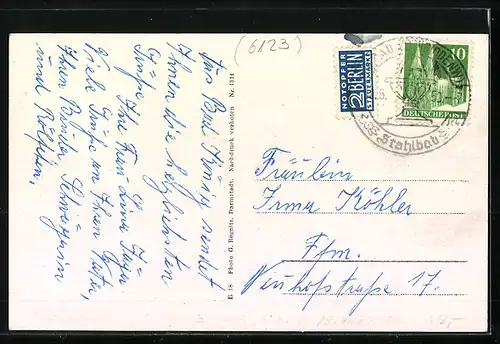 (6123)
Aus Bad König sendet
Ihnen die herzlichsten
Grüße
Ihre Frau Lina
Viele Grüße an Ihren Vater,
Ihren Bruder, Schwägerin
und
B 18 Photo G. Regnitz, Darmstadt. Nachdruck verboten Nr. 1314
NOTOPFER
2 BERLIN
STEUERMARKE
10
DEUTSCHE POST
Stahlbad
Fräulein
Irma Köhler
Ffm.
Neuhofstraße 17.